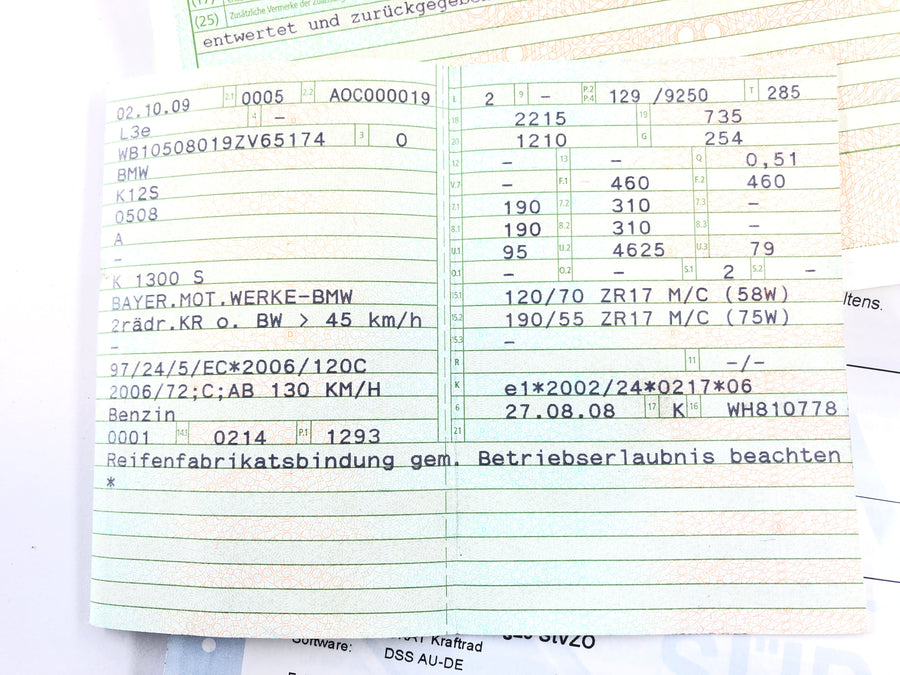 (25) Zusätzliche Vermerke der
entwertet und zurückgegeben
02.10.09 2.1 0005 2.2 AOC000019
L3e 4 –
WB10508019ZV65174 3 0
BMW
K12S
0508
A
–
K 1300 S
BAYER.MOT.WERKE-BMW
2rädr.KR o. BW > 45 km/h
–
97/24/5/EC*2006/120C
2006/72;C;AB 130 KM/H
Benzin
0001 14.1 0214 P.1 1293
L 2 9 – P.2 P.4 129 /9250 T 285
18 2215 19 735
20 1210 G 254
12 – 13 – Q 0,51
V.7 – F.1 460 F.2 460
7.1 190 7.2 310 7.3 –
8.1 190 8.2 310 8.3 –
U.1 95 U.2 4625 U.3 79
O.1 – O.2 – S.1 2 S.2 –
15.1 120/70 ZR17 M/C (58W)
15.2 190/55 ZR17 M/C (75W)
15.3 –
R 11 –/–
K e1*2002/24*0217*06
6 27.08.08 17 K 16 WH810778
21
Reifenfabrikatsbindung gem. Betriebserlaubnis beachten
*
ltens.
Kraftrad
StVZO
Software: DSS AU-DE